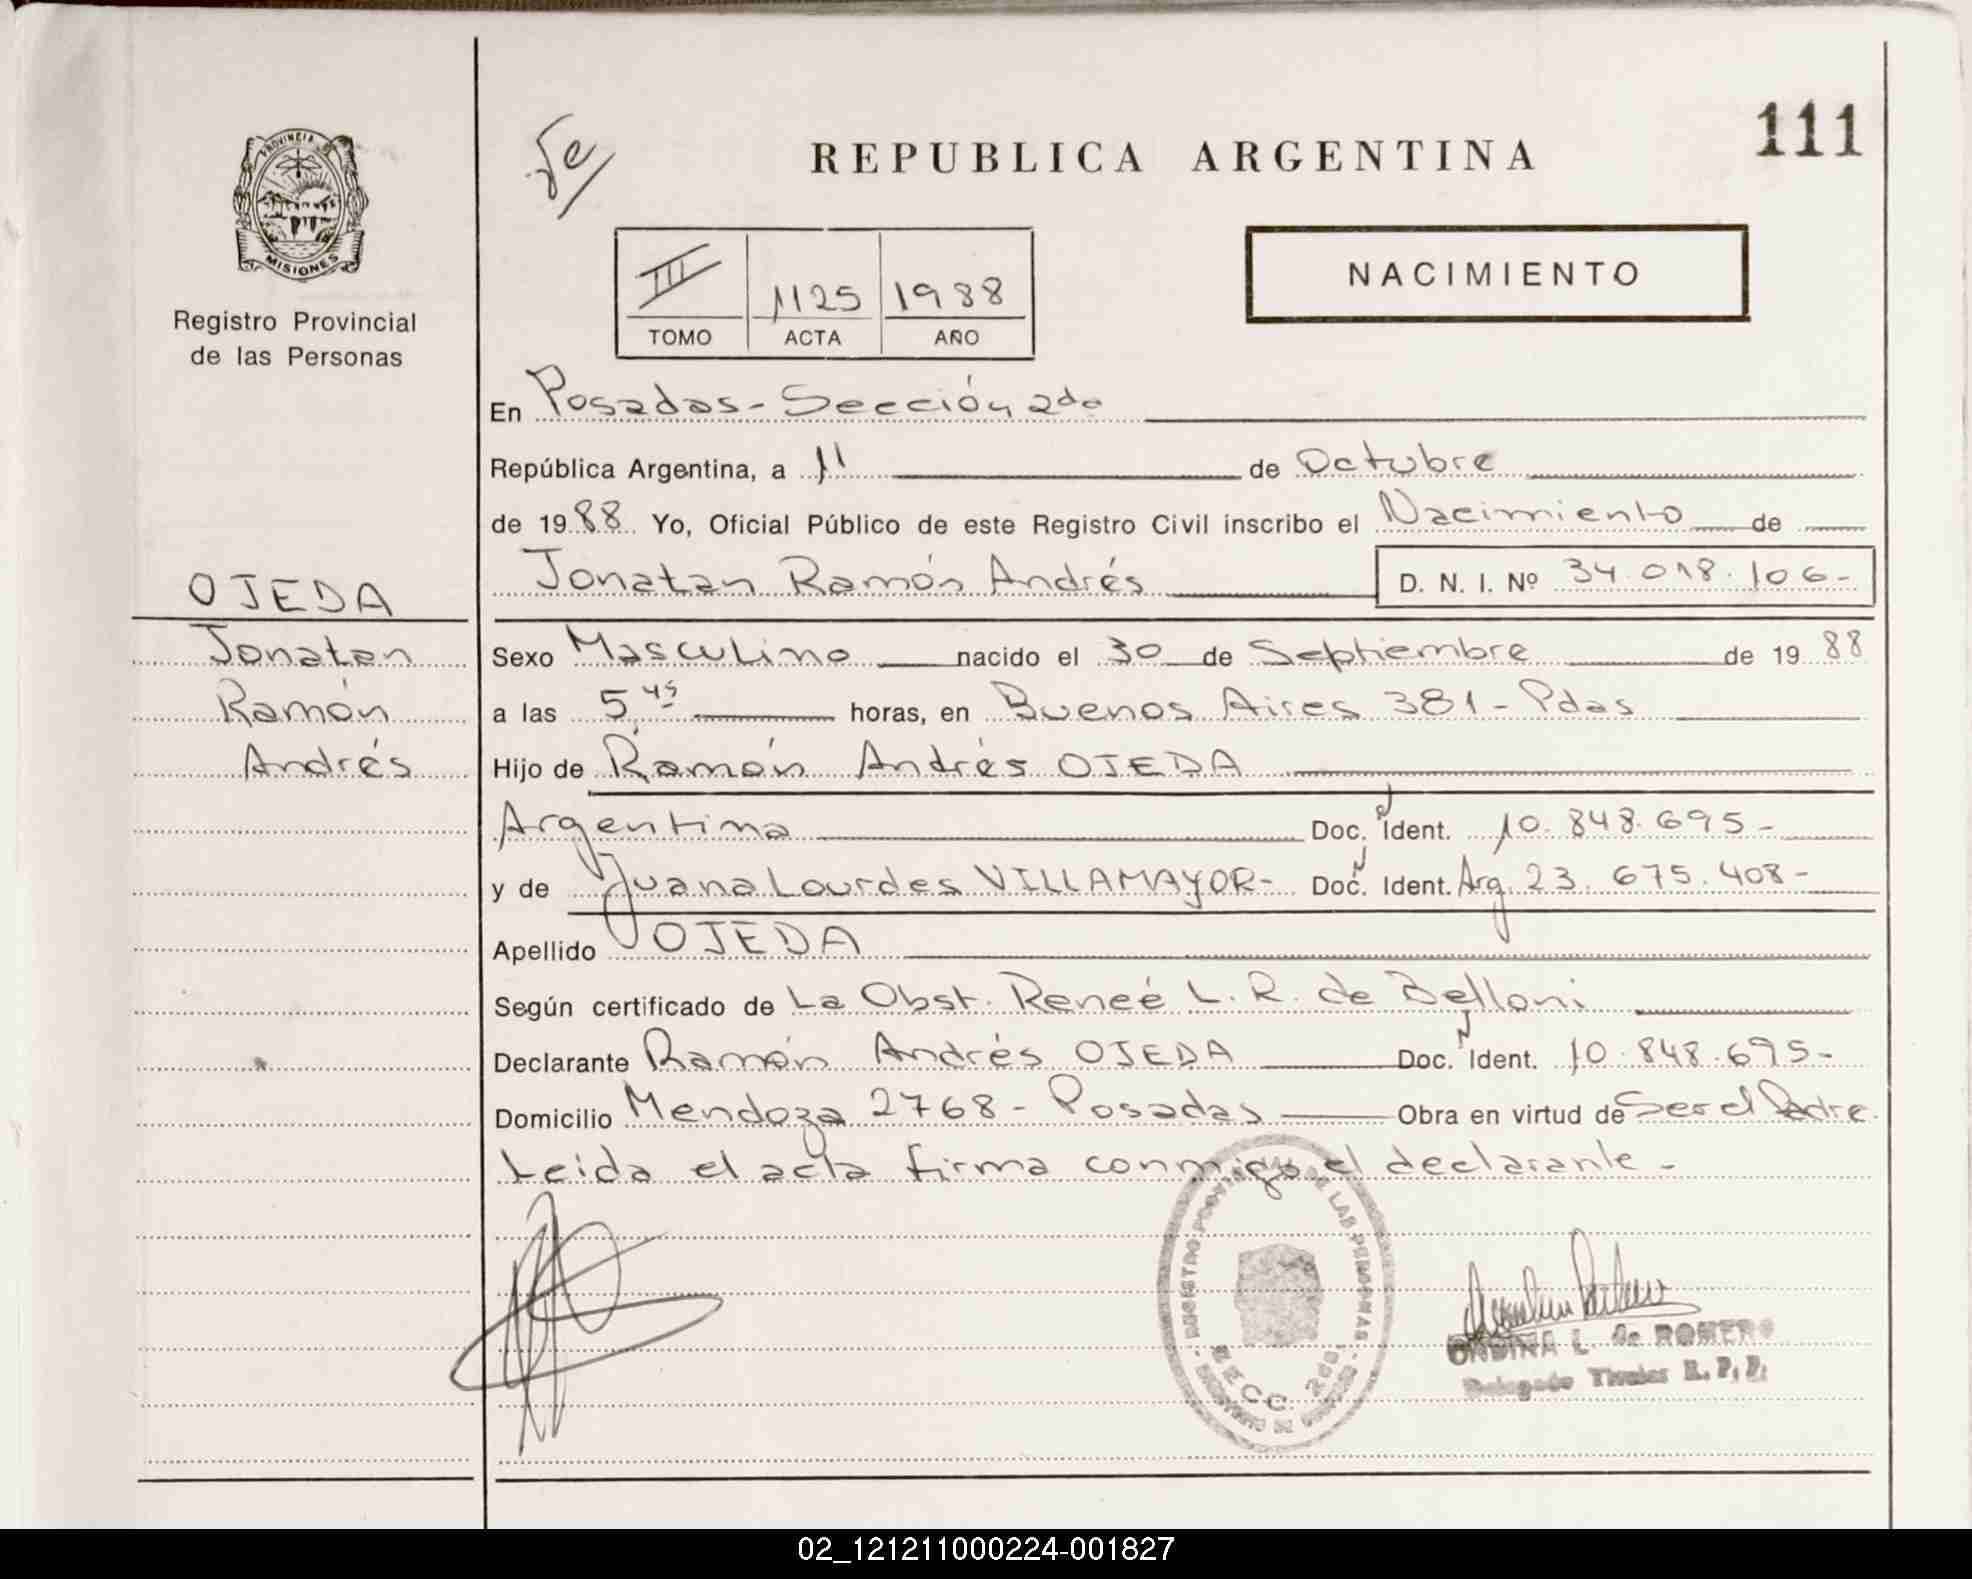 111
PROVINCIA DE
MISIONES
Registro Provincial
de las Personas
REPUBLICA ARGENTINA
III 1125 1988
TOMO ACTA AÑO
NACIMIENTO
En Posadas - Sección 2da
República Argentina, a 11 de Octubre
de 1988 Yo, Oficial Público de este Registro Civil inscribo el Nacimiento de
Jonatan Ramón Andrés D. N. I. Nº 34.018.106-
OJEDA
Jonatan
Ramón
Andrés
Sexo Masculino nacido el 30 de Septiembre de 1988
a las 5,45 horas, en Buenos Aires 381 - Pdas
Hijo de Ramón Andrés OJEDA
Argentina Doc. Ident. 10.848.695-
y de Juana Lourdes VILLAMAYOR- Doc. Ident. Arg 23.675.408-
Apellido OJEDA
Según certificado de La Obst. Reneé L. R. de Belloni
Declarante Ramón Andrés OJEDA Doc. Ident. 10.848.695-
Domicilio Mendoza 2768 - Posadas Obra en virtud de Ser el Padre.
Leida el acta firma conmigo el declarante -
REGISTRO PROVINCIAL DE LAS PERSONAS
SECC. 2da
ONDINA L. de ROMERO
Delegado Titular R. P. P.
02_121211000224-001827